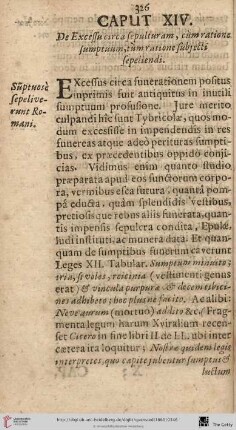 326
CAPUT XIV.
De Excessu circa sepulturam, cùm ratione
sumptuum, tùm ratione subjecti
sepeliendi.
Sũptuosè
sepelive-
runt Ro-
mani.
Excessus circa funerationem positus
inprimis fuit antiquitus in inutili
sumptuum profusione. Jure merito
culpandi hîc sunt Tybricolæ, quos mo-
dum excessisse in impendendis in res
funereas atque adeò perituras sumpti-
bus, ex præcedentibus oppidò conji-
cias. Vidimus enim quanto studio
præparata apud eos functorum corpo-
ra, vermibus esca futura, quantâ pom-
pâ educta, quàm splendidis vestibus,
pretiosisque rebus aliis funerata, quan-
tis impensis sepulcra condita, Epulæ,
ludi instituti, ac munera data. Et quan-
quam de sumptibus funerum caverunt
Leges XII. Tabular. Sumptum minuito;
tria, si voles, reicinia (vestimenti genus
erat) & vincula purpuræ & decem tibici-
nes adhibeto; hoc plus ne facito. Ac alibi:
Neve aurum (mortuo) addito &c.
Fragmenta legum harum Xviralium recen-
set Cicero in fine libri II. de LL. ubi inter
cætera ita loquitur; Nostræ quidem legis
interpretes, quo capite jubentur sumptus &
luctum
http://digi.ub.uni-heidelberg.de/diglit/
© Universitätsbibliothek Heidelberg
The Getty